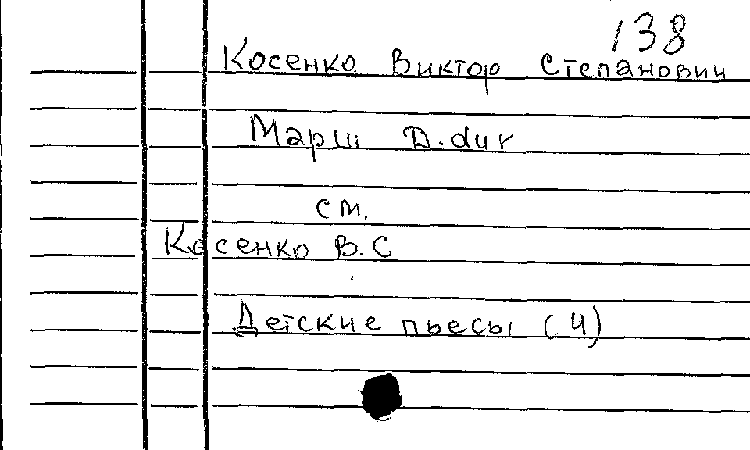 138
Косенко Виктор Степанович
Марш D.dur
см.
Косенко В.С
Детские пьесы (4)